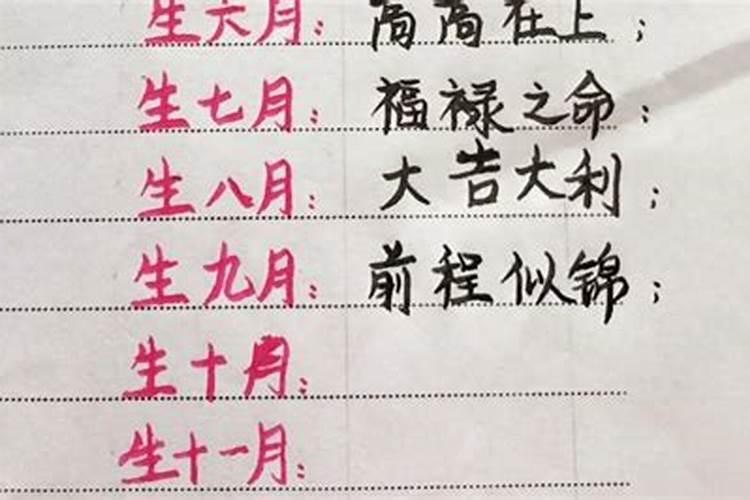 生六月：高高在上；
生七月：福禄之命；
生八月：大吉大利；
生九月：前程似锦；
生十月：
生十一月：